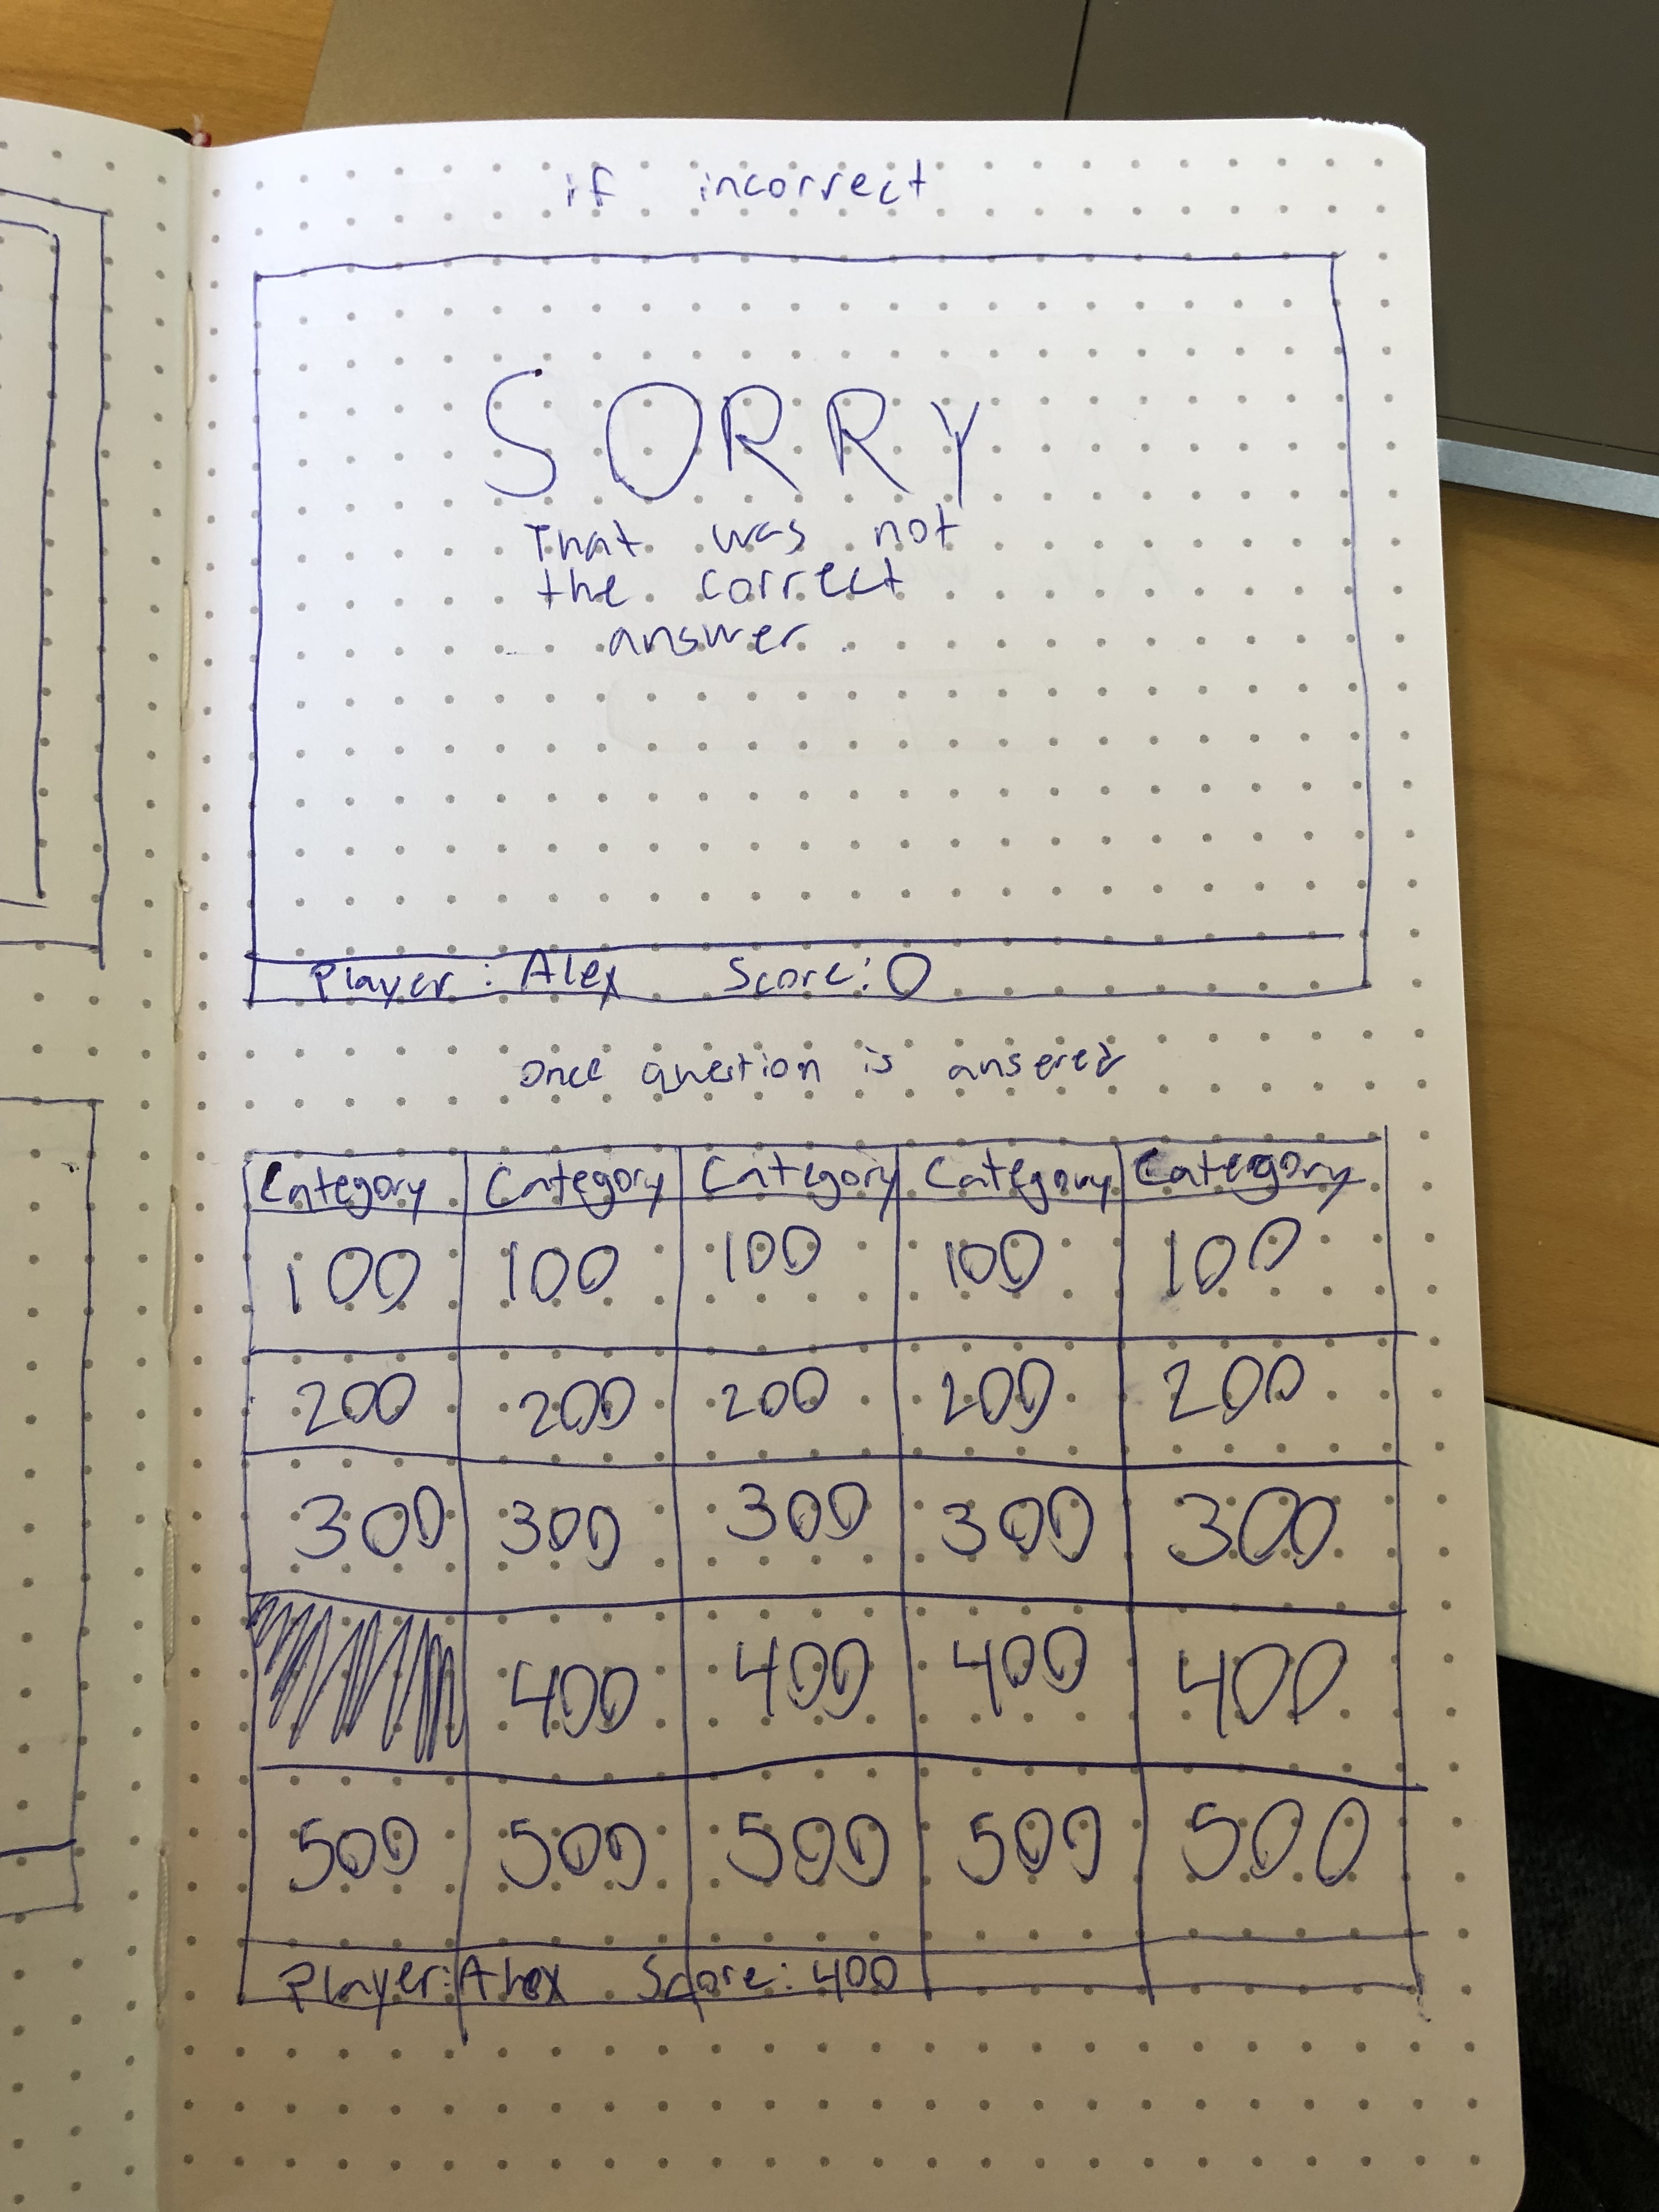 if incorrect
SORRY
That was not
the correct
answer
Player: Alex Score: 0
Once question is ansered
Category Category Category Category Category
100 100 100 100 100
200 200 200 200 200
300 300 300 300 300
400 400 400 400
500 500 500 500 500
Player: Alex Score: 400